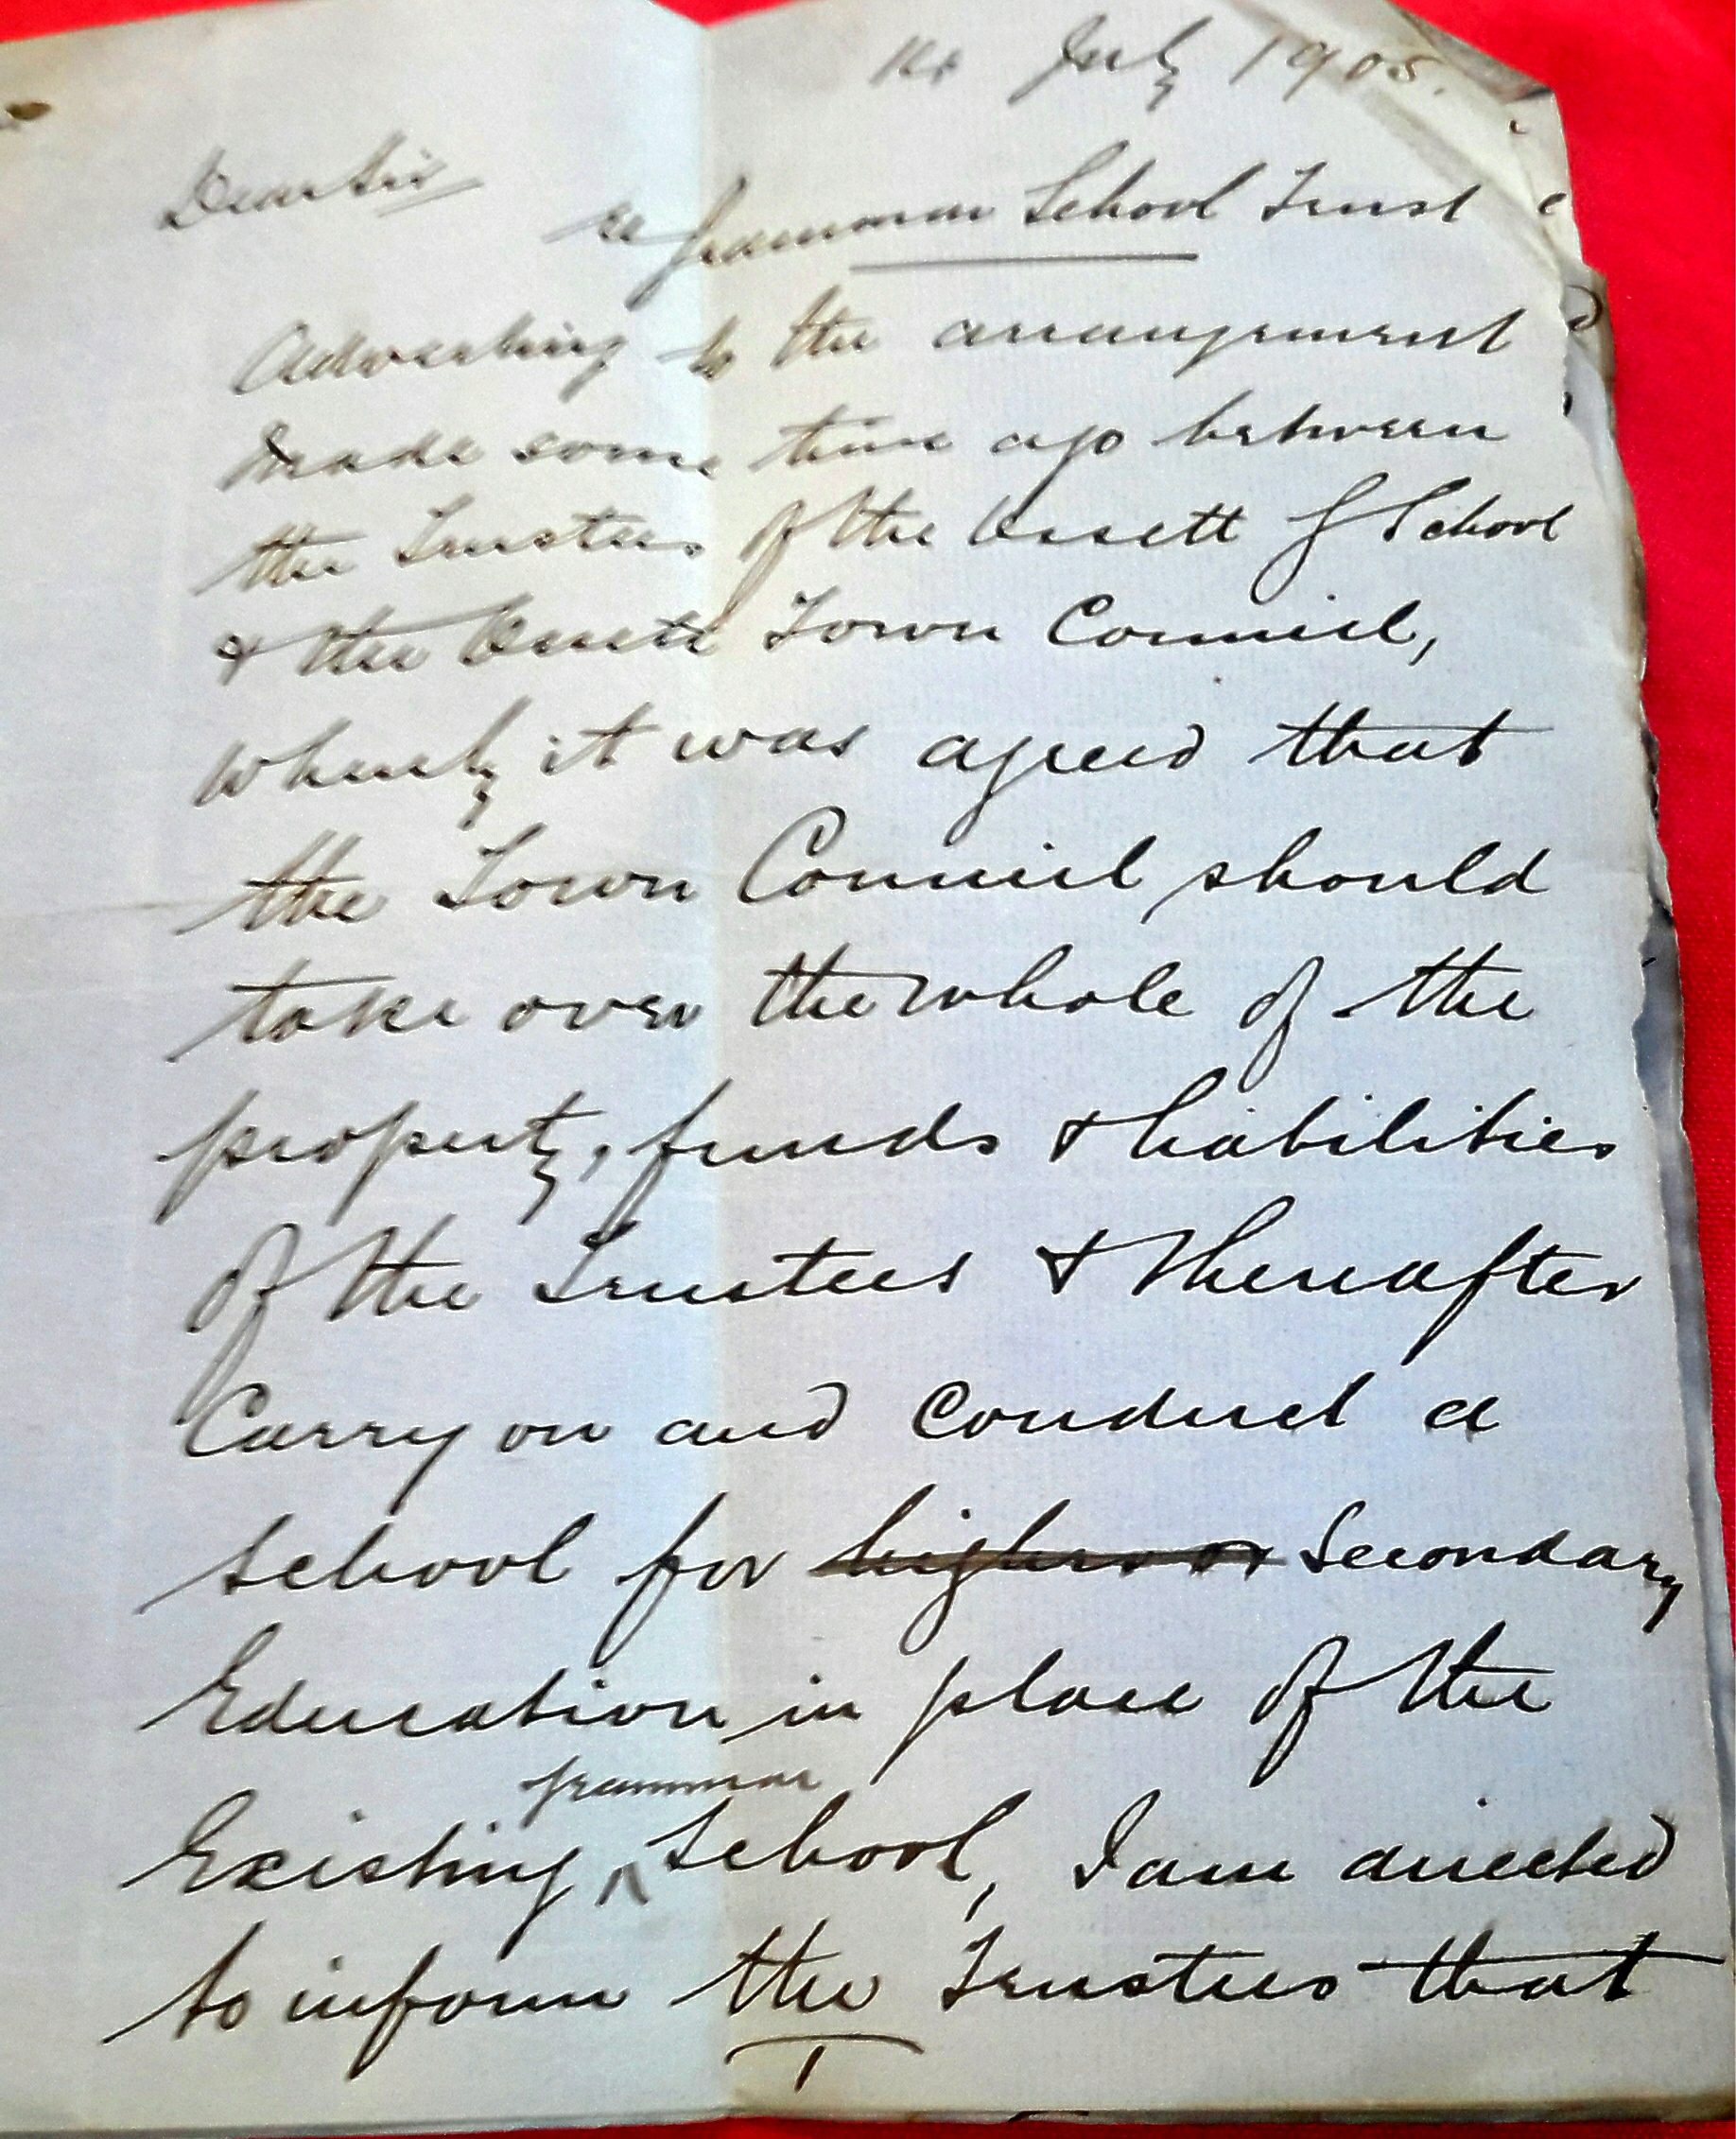 July 1905.
Dear Sir
re Grammar School Trust
Adverting to the arrangement
made some time ago between
the Trustees of the Ossett G School
& the Ossett Town Council,
whereby it was agreed that
the Town Council should
take over the whole of the
property, funds & liabilities
of the Trustees & thereafter
Carry on and Conduct a
School for higher or Secondary
Education in place of the
grammar
Existing ^ School, I am directed
to inform the Trustees that
1